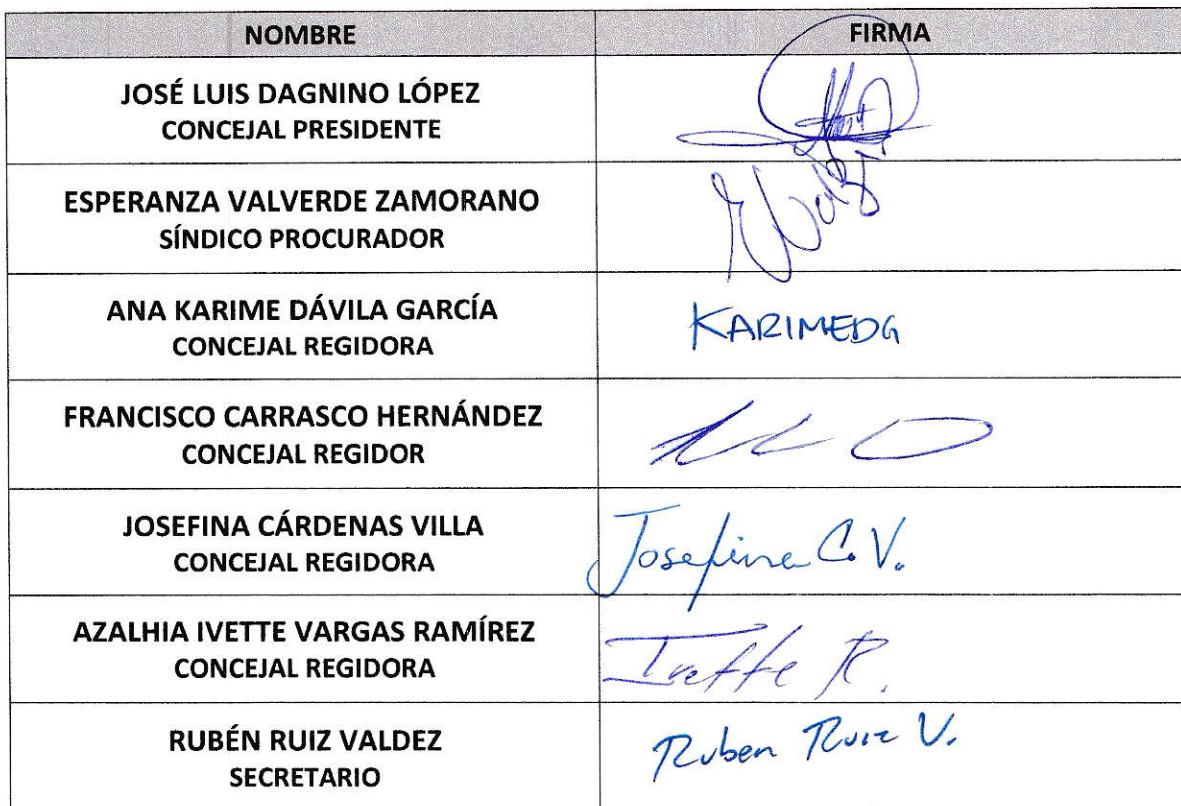 NOMBRE FIRMA
JOSÉ LUIS DAGNINO LÓPEZ
CONCEJAL PRESIDENTE
ESPERANZA VALVERDE ZAMORANO
SÍNDICO PROCURADOR
ANA KARIME DÁVILA GARCÍA
CONCEJAL REGIDORA
KARIMEDG
FRANCISCO CARRASCO HERNÁNDEZ
CONCEJAL REGIDOR
JOSEFINA CÁRDENAS VILLA
CONCEJAL REGIDORA
Josefina C. V.
AZALHIA IVETTE VARGAS RAMÍREZ
CONCEJAL REGIDORA
Ivette R.
RUBÉN RUIZ VALDEZ
SECRETARIO
Ruben Ruiz V.